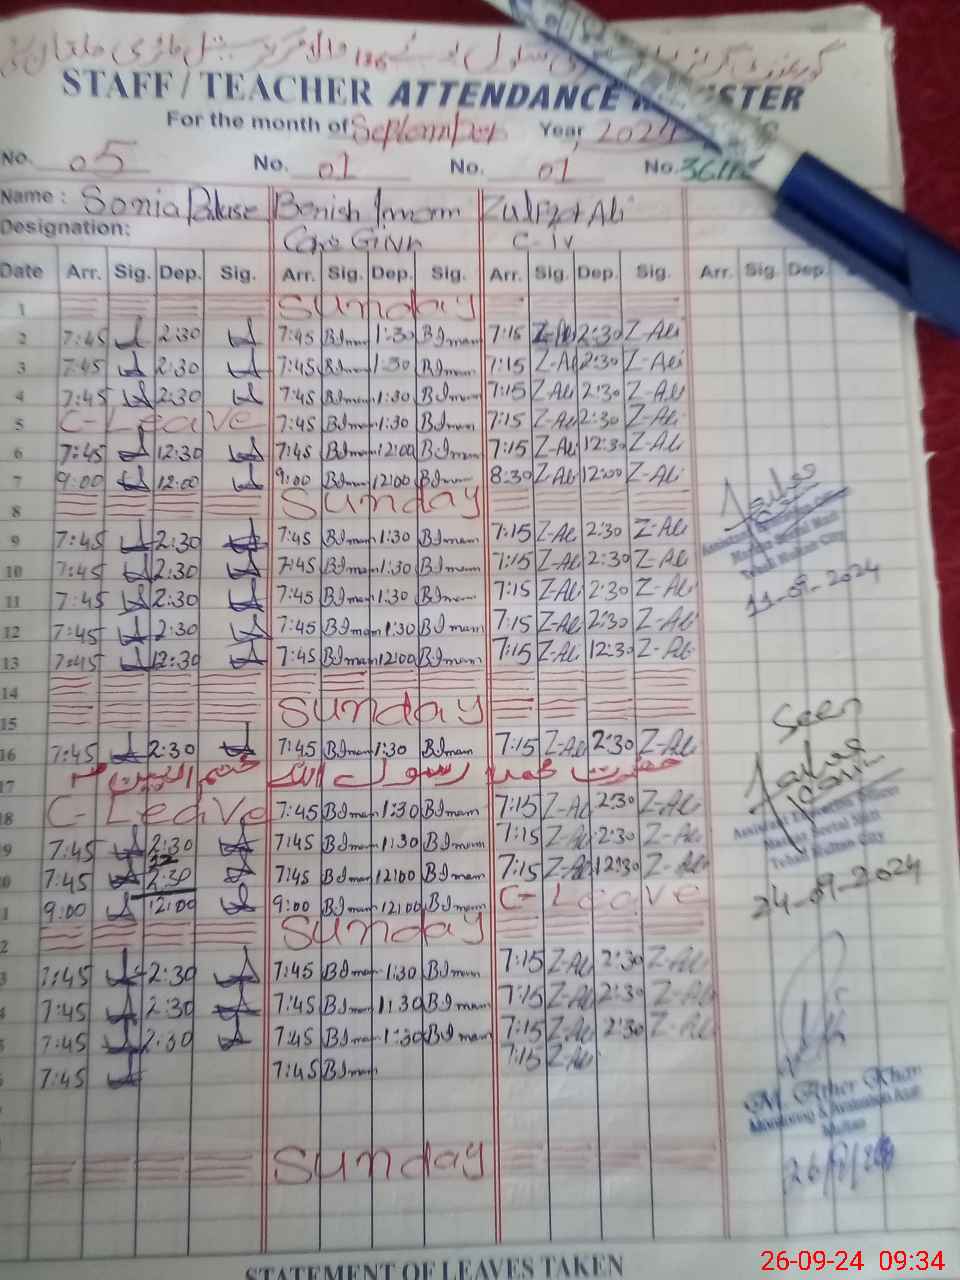 STAFF / TEACHER ATTENDANCE
For the month of September Year, 2024
No. 05 No. 01 No. 01 No.
Name : Sonia Benish Imam Zulfqar Ali
Designation: Care Givn C-iv
Date Arr. Sig. Dep. Sig. Arr. Sig. Dep. Sig. Arr. Sig. Dep. Sig. Arr. Sig. Dep.
1 Sunday
2 7:45 2:30 7:45 BImam 1:30 BImam 7:15 Z-Ali 2:30 Z-Ali
3 7:45 2:30 7:45 BImam 1:30 BImam 7:15 Z-Ali 2:30 Z-Ali
4 7:45 2:30 7:45 BImam 1:30 BImam 7:15 Z-Ali 2:30 Z-Ali
5 C-Leave 7:45 BImam 1:30 BImam 7:15 Z-Ali 2:30 Z-Ali
6 7:45 12:30 7:45 BImam 12:00 BImam 7:15 Z-Ali 12:30 Z-Ali
7 9:00 12:00 9:00 BImam 12:00 BImam 8:30 Z-Ali 12:00 Z-Ali
8 Sunday
9 7:45 2:30 7:45 BImam 1:30 BImam 7:15 Z-Ali 2:30 Z-Ali
10 7:45 2:30 7:45 BImam 1:30 BImam 7:15 Z-Ali 2:30 Z-Ali
11 7:45 2:30 7:45 BImam 1:30 BImam 7:15 Z-Ali 2:30 Z-Ali
11-09-2024
12 7:45 2:30 7:45 BImam 1:30 BImam 7:15 Z-Ali 2:30 Z-Ali
13 7:45 12:30 7:45 BImam 12:00 BImam 7:15 Z-Ali 12:30 Z-Ali
14
15 Sunday
Seen
16 7:45 2:30 7:45 BImam 1:30 BImam 7:15 Z-Ali 2:30 Z-Ali
17 حضرت محمد رسول اللہ خاتم النبیین
18 C-Leave 7:45 BImam 1:30 BImam 7:15 Z-Ali 2:30 Z-Ali
9 7:45 2:30 7:45 BImam 1:30 BImam 7:15 Z-Ali 2:30 Z-Ali
0 7:45 2:30 7:45 BImam 12:00 BImam 7:15 Z-Ali 12:30 Z-Ali
1 9:00 12:00 9:00 BImam 12:00 BImam C-Leave
24-09-2024
2 Sunday
3 7:45 2:30 7:45 BImam 1:30 BImam 7:15 Z-Ali 2:30 Z-Ali
7:45 2:30 7:45 BImam 1:30 BImam 7:15 Z-Ali 2:30 Z-Ali
7:45 2:30 7:45 BImam 1:30 BImam 7:15 Z-Ali 2:30 Z-Ali
7:45 7:45 BImam 7:15 Z-Ali
Khan
Monitoring & Evaluation
Multan
Sunday
STATEMENT OF LEAVES TAKEN
26-09-24 09:34